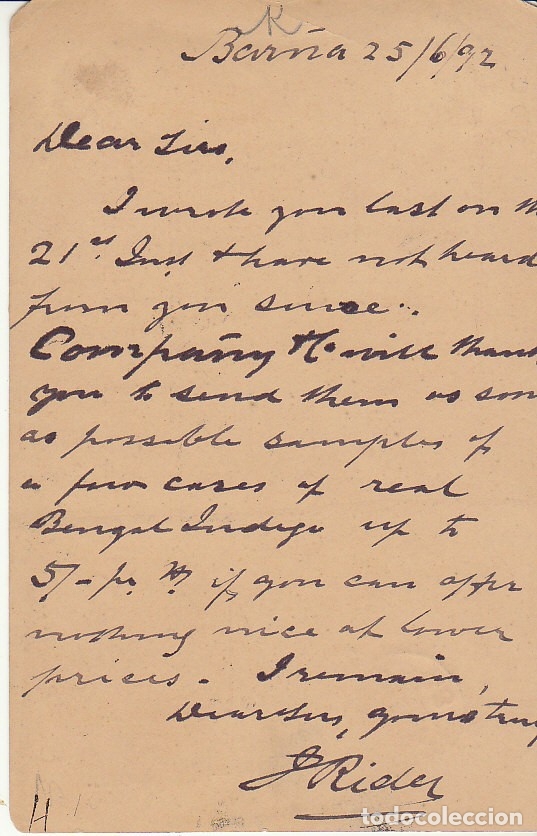 K
Barña 25/6/92
Dear Sirs,
I wrote you last on th
21st Inst & have not heard
from you since..
Company Ho will thank
you to send them as soon
as possible samples of
a few cases of real
Bengal Indigo up to
5/- pr. lb if you can offer
nothing nice at lower
prices. I remain,
Dear Sirs, yours truly
J Rider
H
todocoleccion
todocoleccion.net